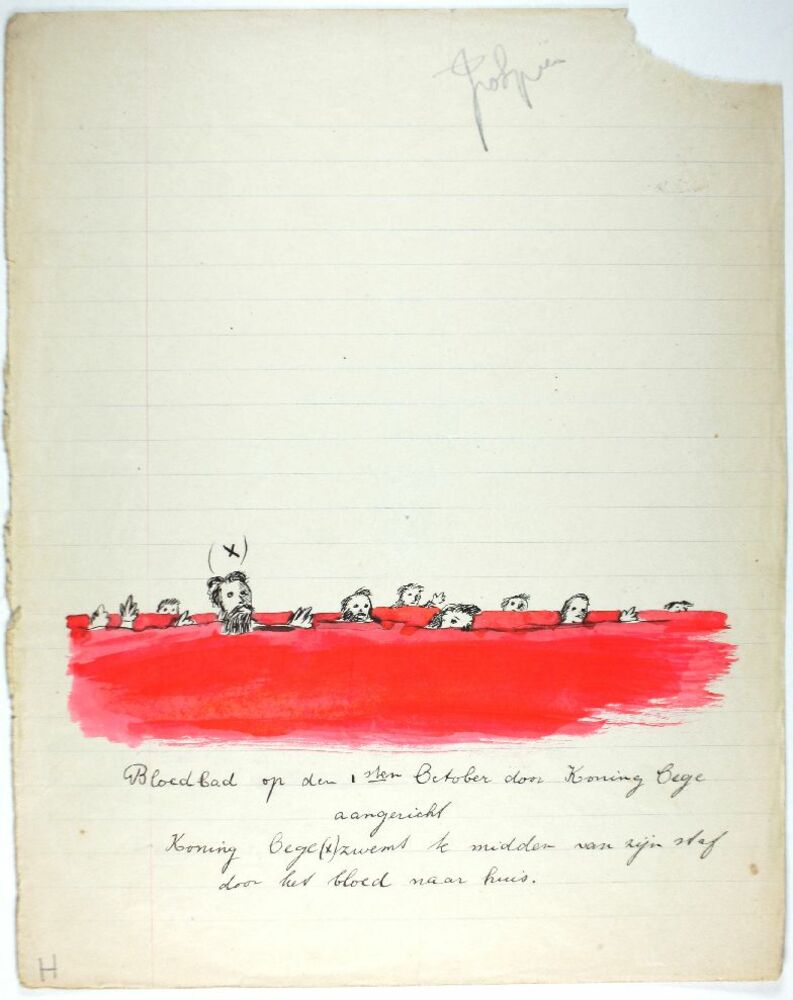 (x)
Bloedbad op den 1sten October door Koning Oege
aangericht
Koning Oege(x)zwemt te midden van zijn staf
door het bloed naar huis.
H